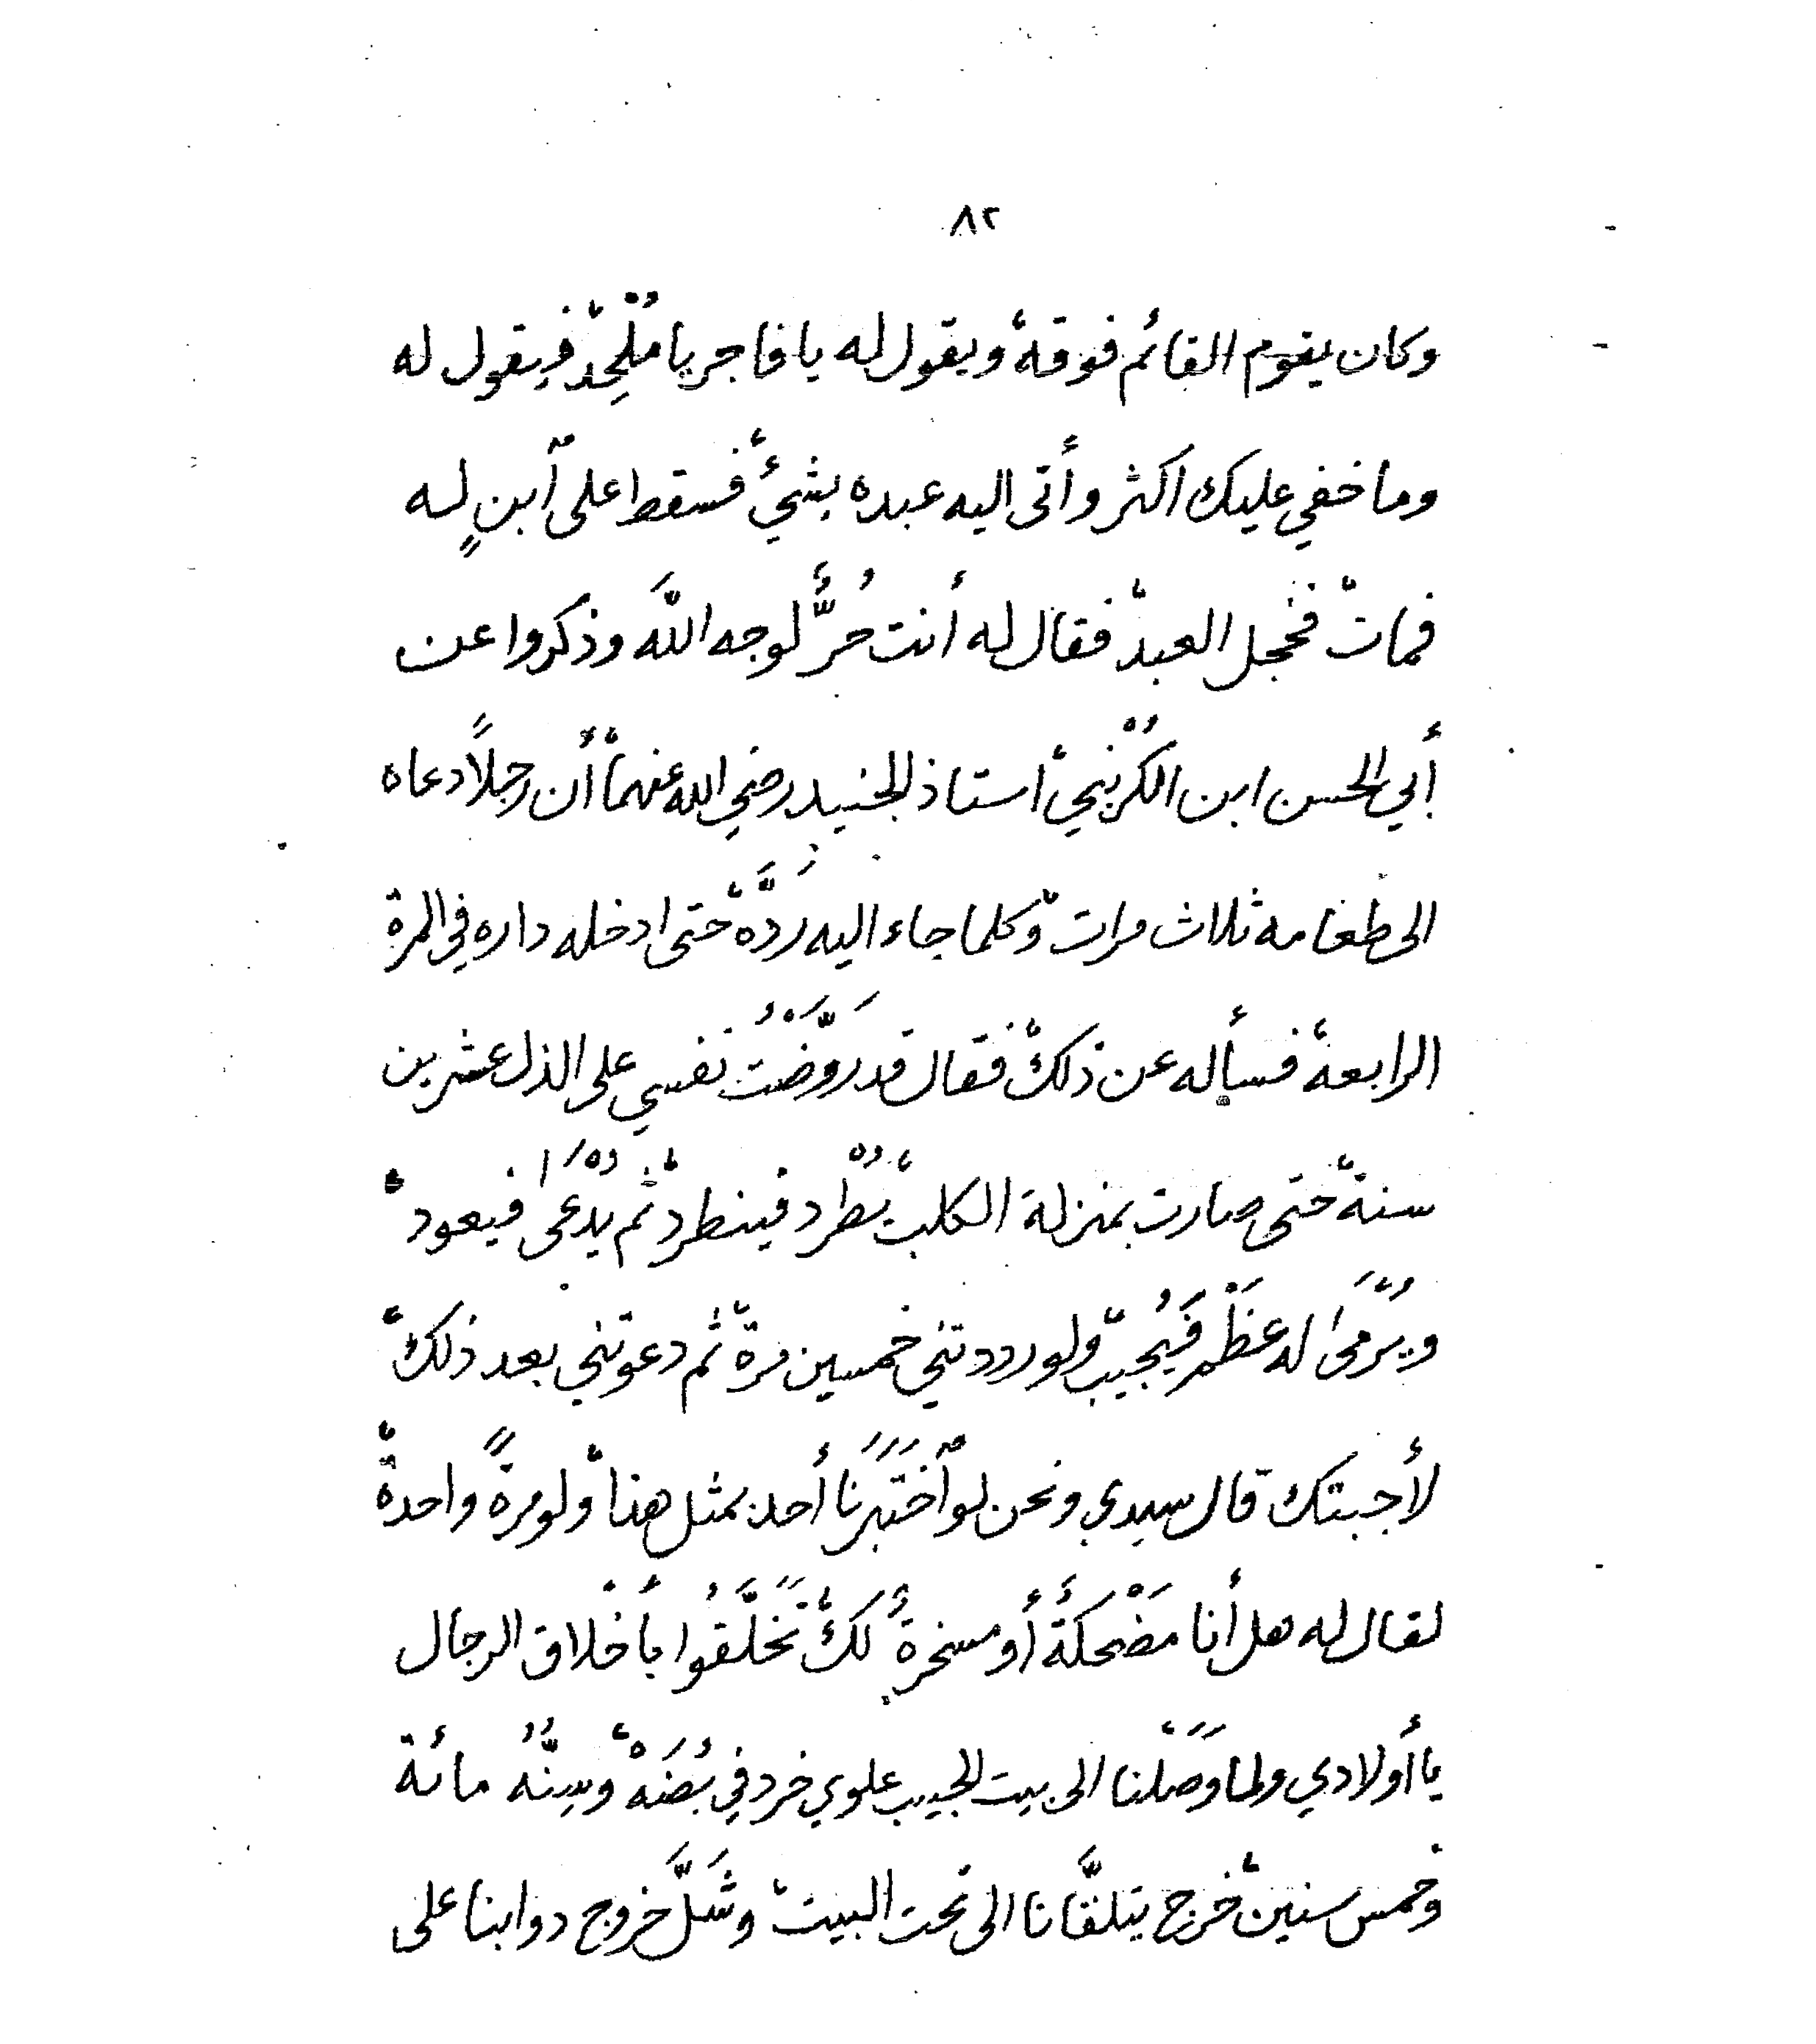 ٨٢
وكان يقوم القائم فوقه، ويقول له يا فاجر يا مُلْحِد، فيقول له
وما خفي عليك اكثر وأتى اليه عبده بشيء، فسقط على ٱبنٍ له
فمات، فخجل العبد، فقال له أنت حُرٌّ، لوجه اللَّه وذكروا عن
أبي الحسن ابن الكُرْنبي، استاذ الجنيد رضي الله عنهما، أن رجلاً دعاه
الى طعامه ثلاث مرات، وكلما جاء اليه رَدَّه، حتى ادخله داره في المرة
الرابعة، فسأله عن ذلك، فقال قد رَوَّضْتُ نفسي على الذل عشرين
سنة، حتى صارت بمنزلة الكلب، يُطْرد فينطرد، ثم يُدْعَىٰ فيعود،
ويُرْمَىٰ له عَظْم فَيُجيب، ولو رددتني خمسين مرة، ثم دعوتني بعد ذلك،
لأجبتك قال سيدي ونحن لو ٱخْتَبَرَنَا أحد بمثل هذا، ولو مرةً واحدة،
لقال له هل أنا مَضْحَكَةٌ أو مسخرةٌ لك، تَخَلَّقُوا بأخلاق الرجال
يا أولادي ولما وَصَلْنا الى بيت الحبيب علوي خرد في بُضَهْ، وسِنُّهُ مائة
وخمس سنين، خرج يتلقَّانا الى تحت البيت، وشَلَّ خروج دوابنا على